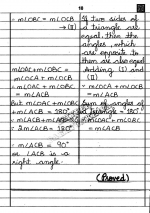 18
∴ m∠OBC = m∠OCB
→ (II)
If two sides of
a triangle are
equal, then the
angles, which
are opposite to
them are also equal
m∠OAC + m∠OBC =
m∠OCA + m∠OCB
∴ m∠OAC + m∠OBC
= m∠ACB
Adding (I) and
(II)
m∠OCA + m∠OCB
= m∠ACB
But m∠OAC + m∠OBC
+ m∠ACB = 180°
∴ 2m∠ACB = 180°
Sum of angles of
a triangle = 180°
m∠OAC + m∠OBC
= m∠ACB
∴ m∠ACB = 90°
or ∠ACB is a
right angle.
(Proved)